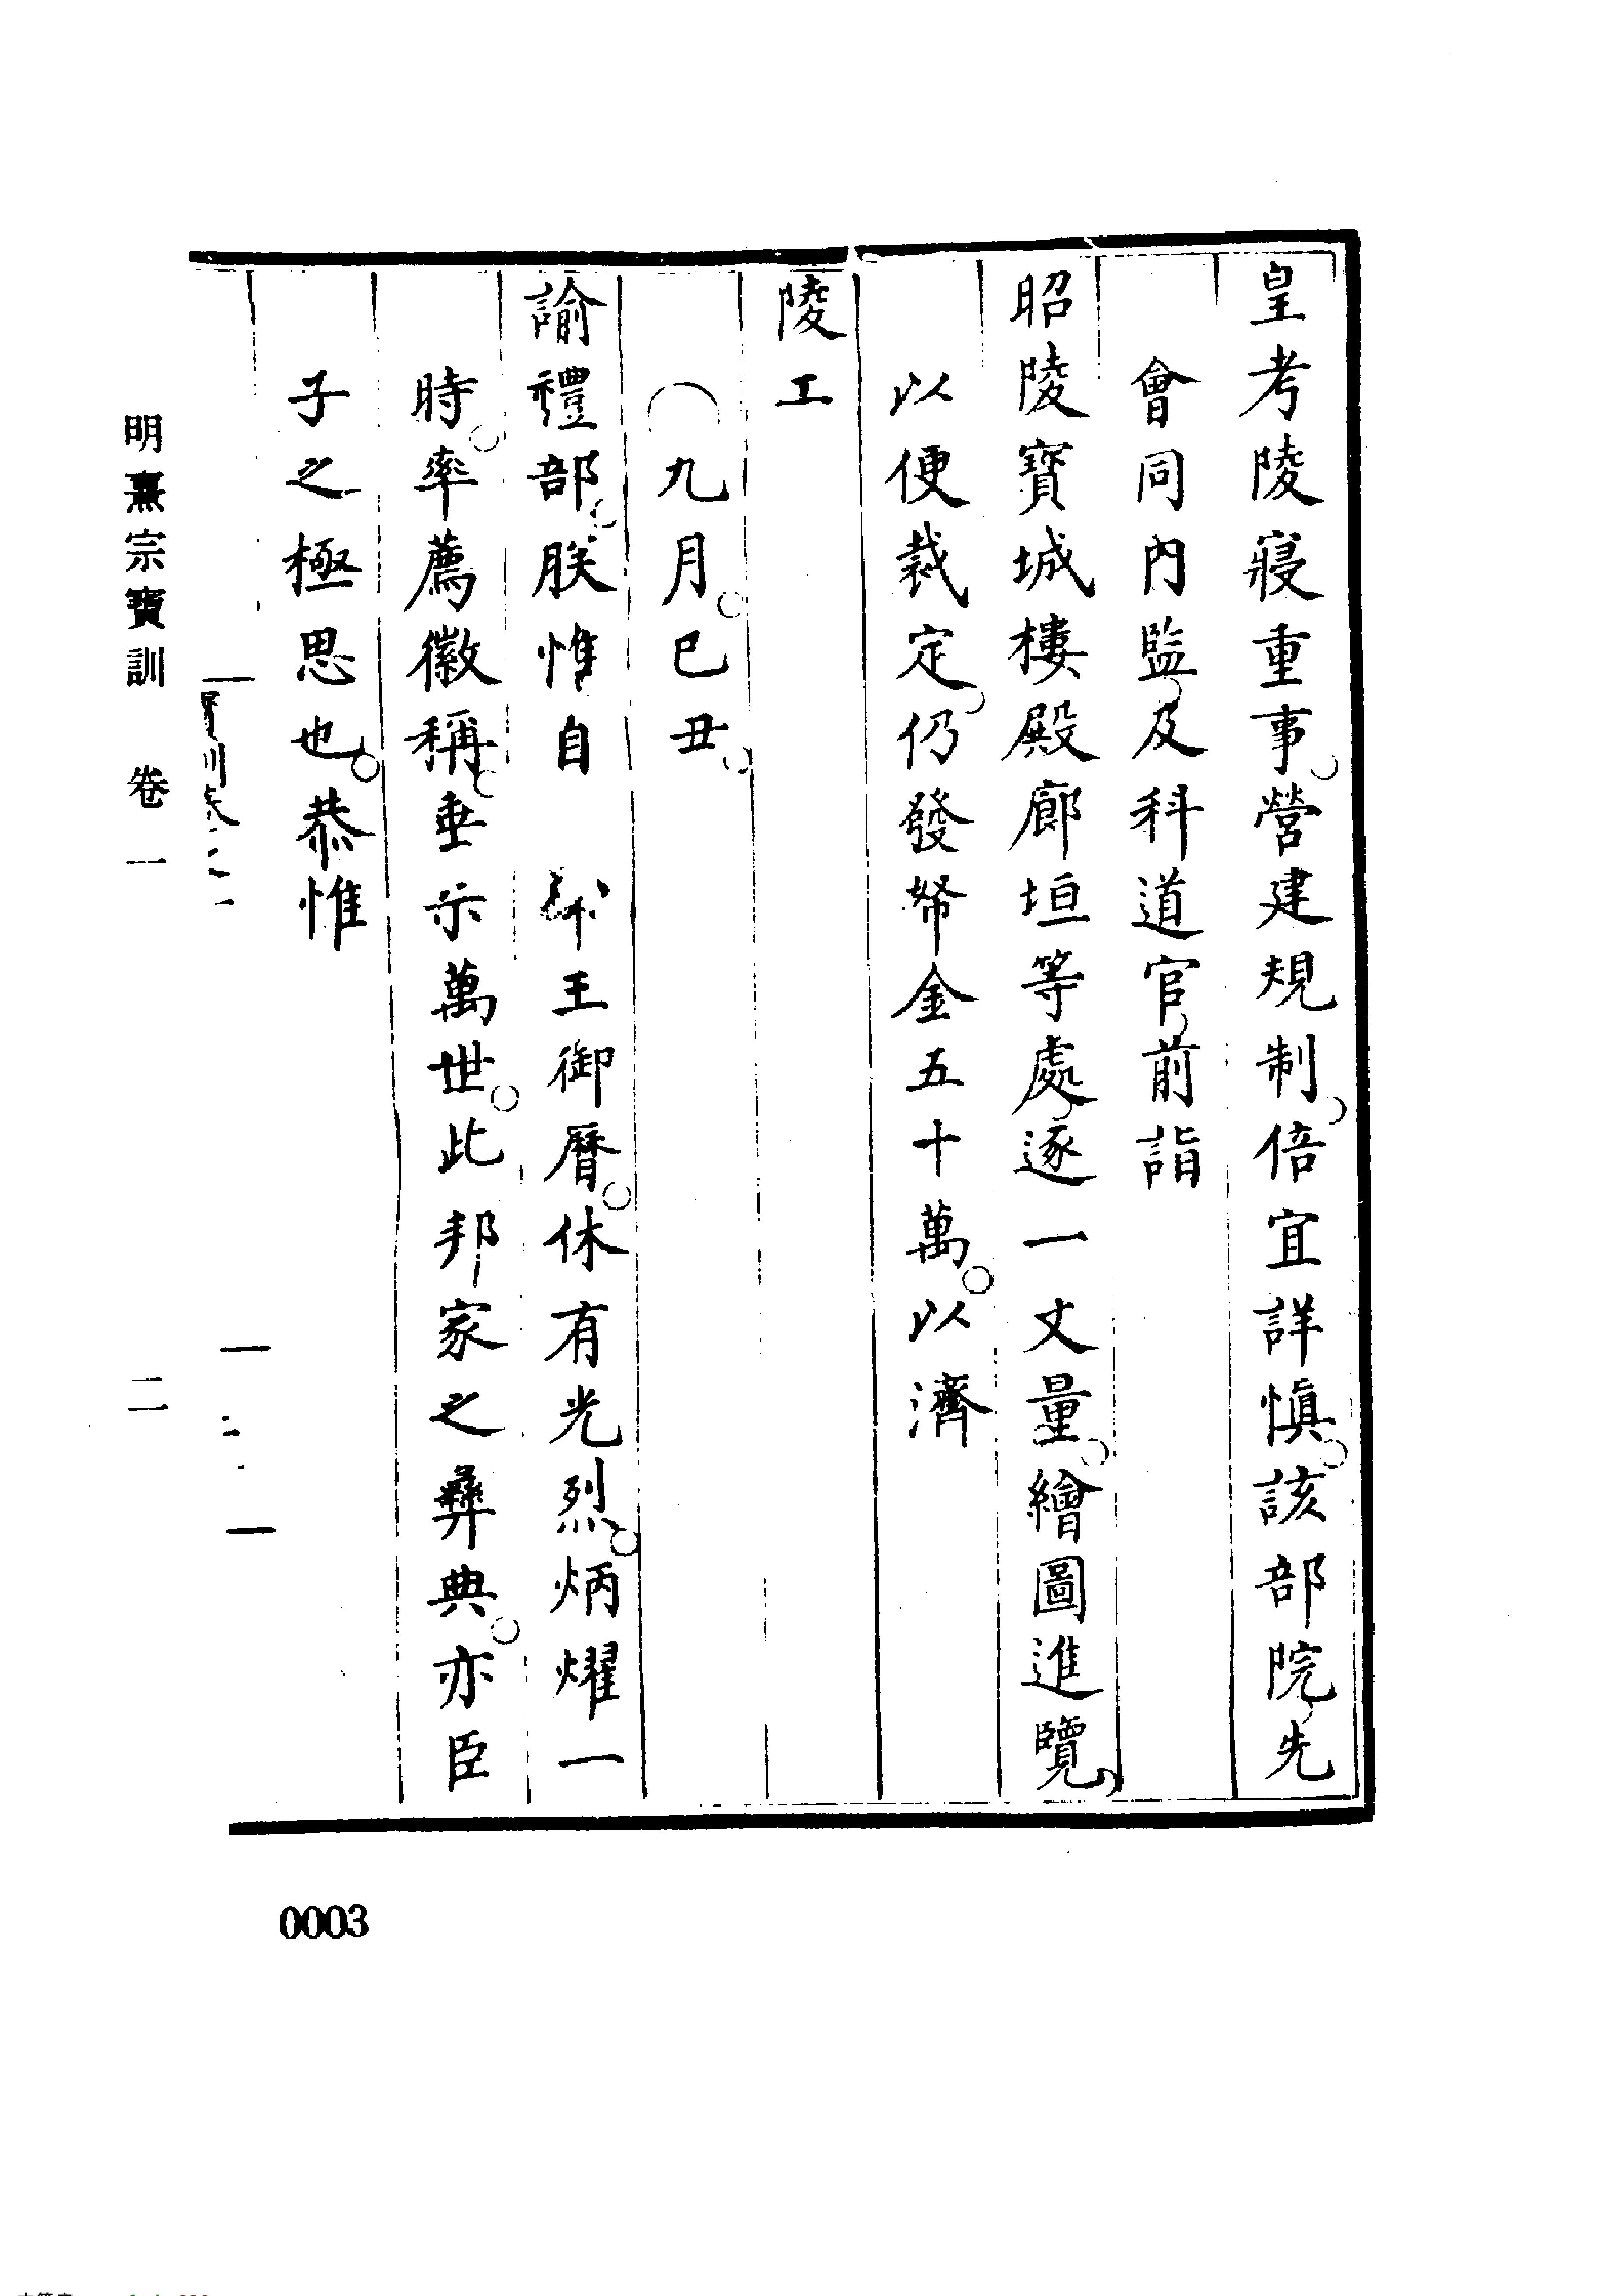 皇考陵寢重事營建規制倍宜詳慎該部院先
會同內監及科道官前詣
昭陵寶城樓殿廊垣等處逐一丈量繪圖進覽
以便裁定仍發帑金五十萬以濟
陵工
○九月己丑
諭禮部朕惟自 王御曆休有光烈炳燿一
時率薦徽稱垂示萬世此邦家之彝典亦臣
子之極思也恭惟
寶訓卷之一
明熹宗寶訓 卷一 二
0003